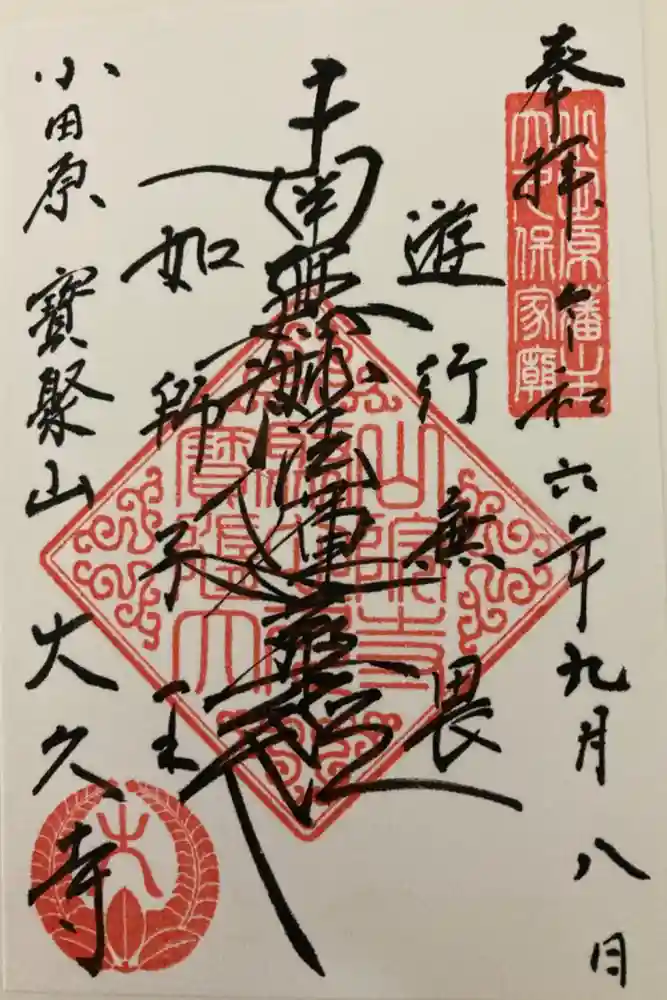 奉拝 令和六年九月八日
小田原藩主
大久保家廟
遊行無畏
南無妙法蓮華経
如師子王
小田原 寶聚山 大久寺
大